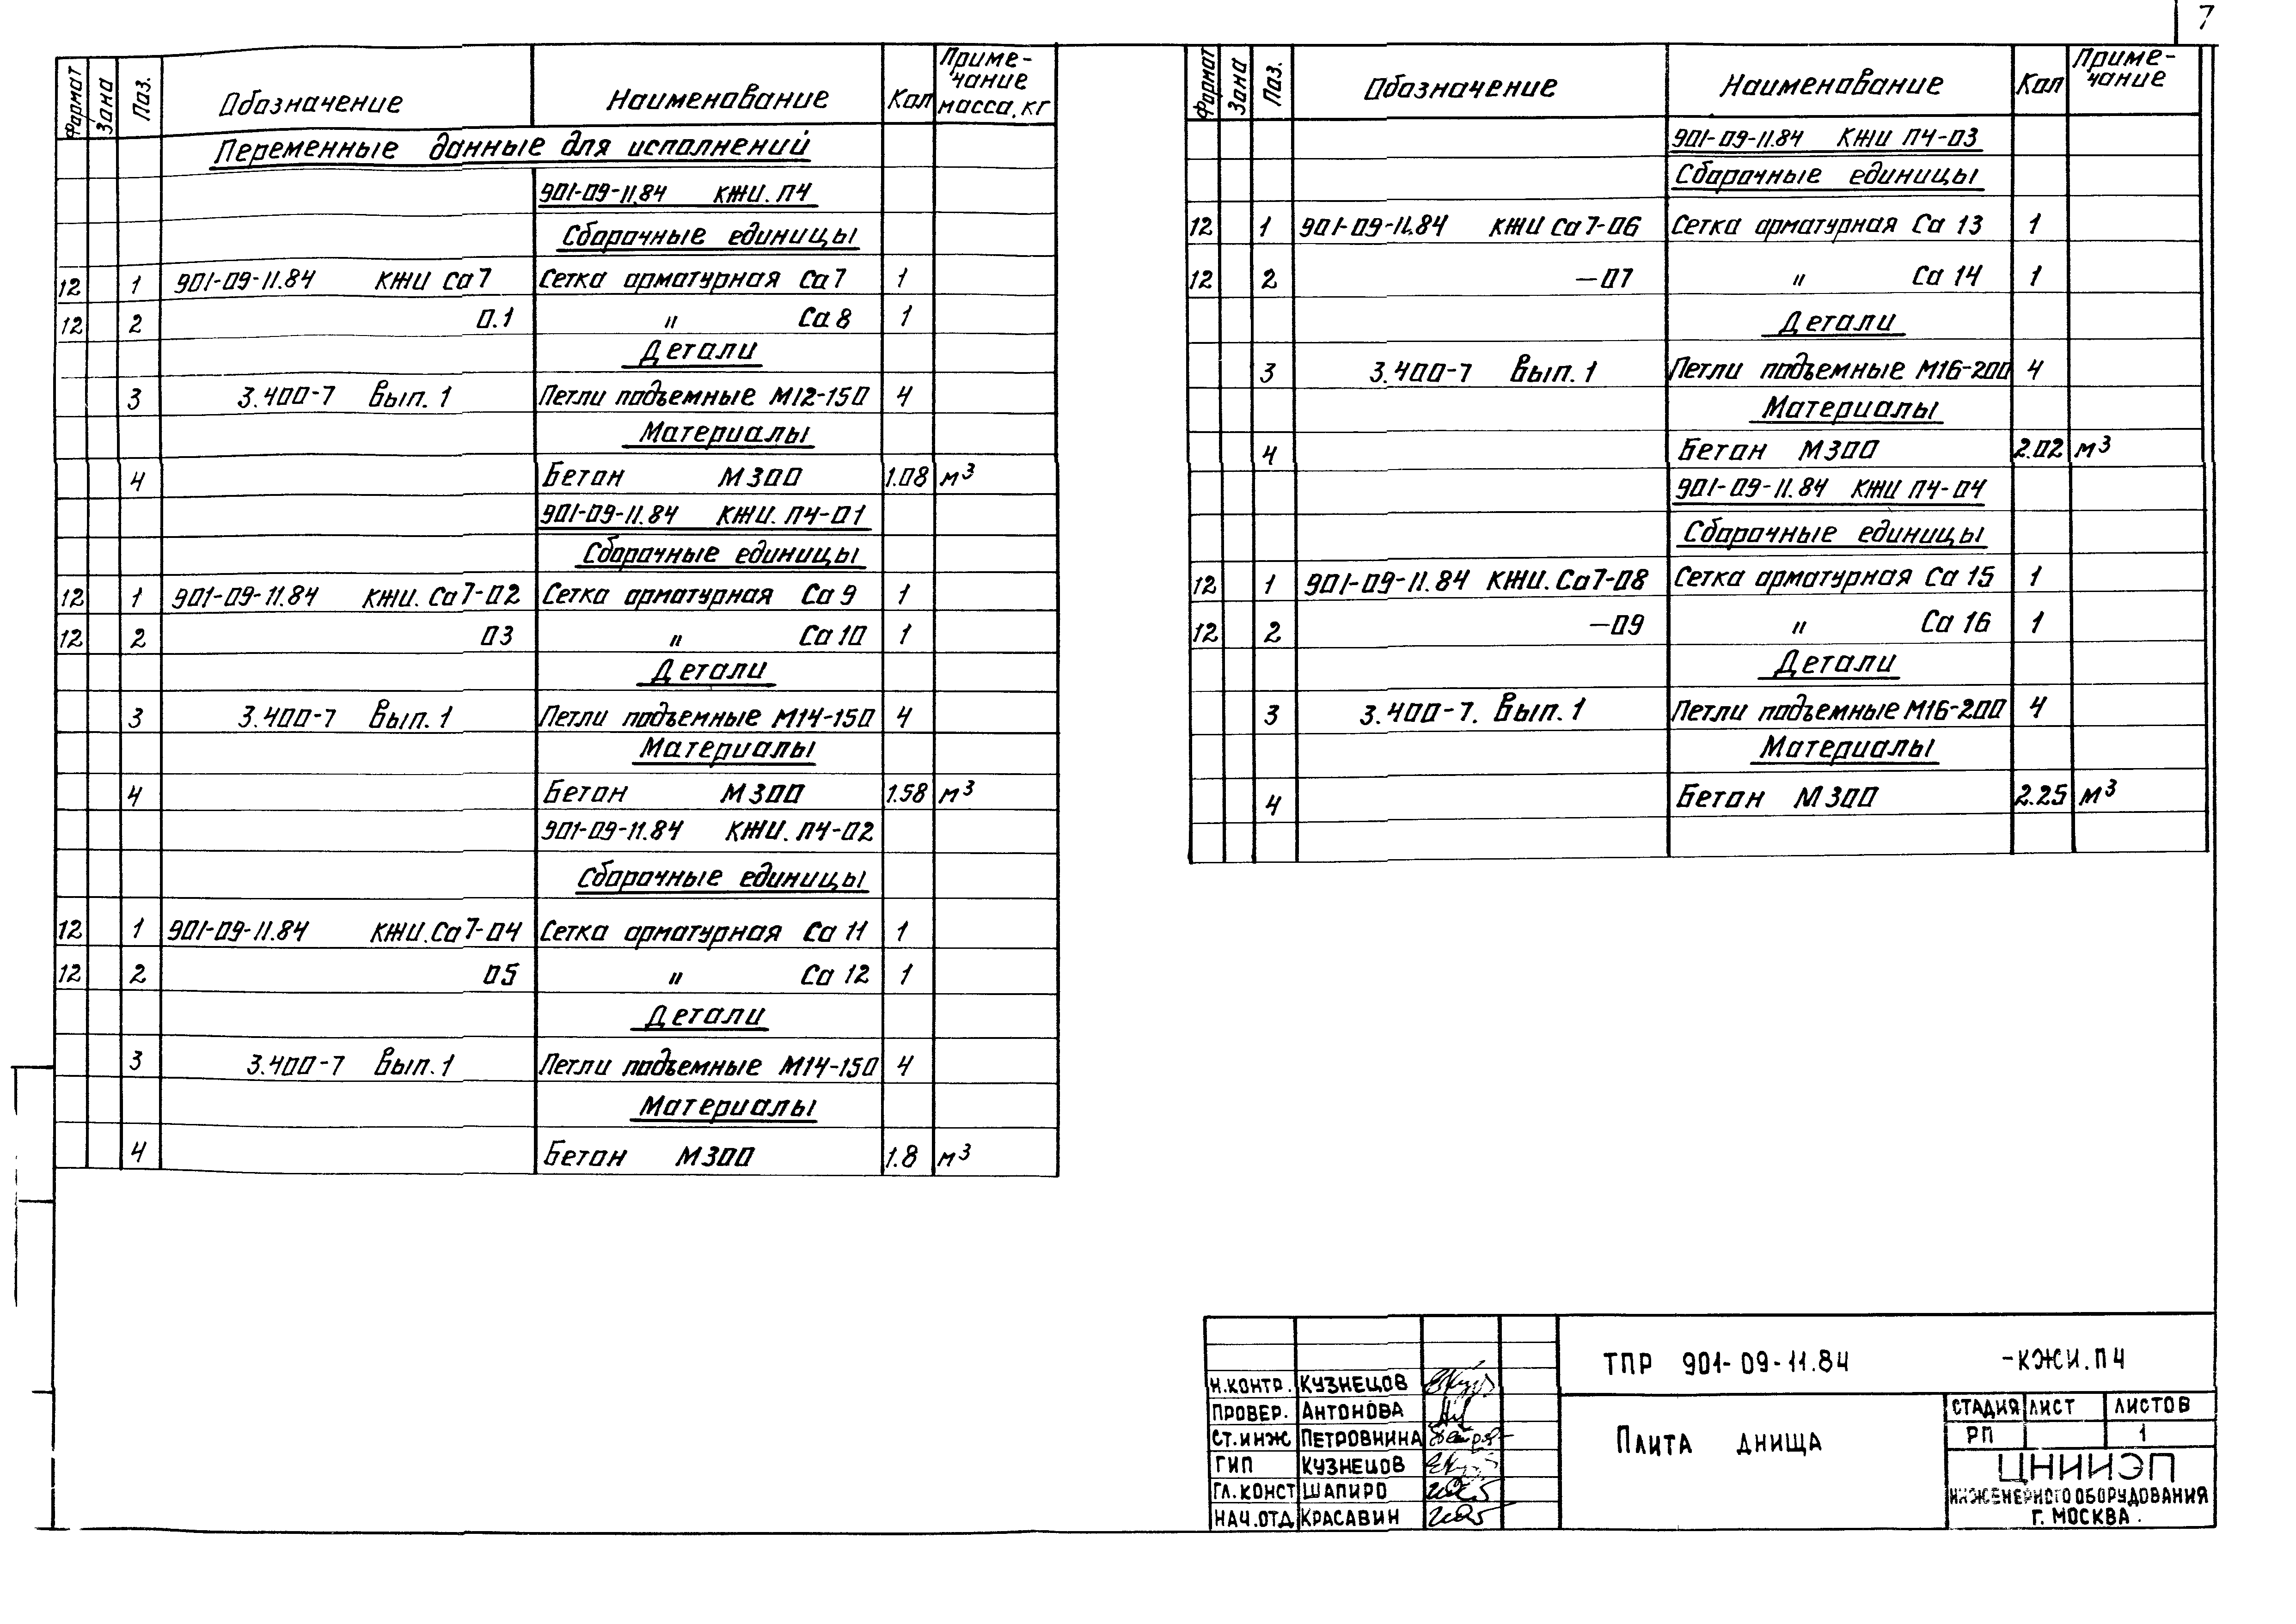 7
Формат Зона Поз. Обозначение Наименование Кол Приме-
чание
масса, кг
Переменные данные для исполнений
901-09-11.84 КЖИ. П4
Сборочные единицы
12 1 901-09-11.84 КЖИ Са7 Сетка арматурная Са7 1
12 2 0.1 " Са8 1
Детали
3 3.400-7 Вып. 1 Петли подъемные М12-150 4
Материалы
4 Бетон М300 1.08 м³
901-09-11.84 КЖИ. П4-01
Сборочные единицы
12 1 901-09-11.84 КЖИ. Са7-02 Сетка арматурная Са9 1
12 2 03 " Са10 1
Детали
3 3.400-7 Вып. 1 Петли подъемные М14-150 4
Материалы
4 Бетон М300 1.58 м³
901-09-11.84 КЖИ. П4-02
Сборочные единицы
12 1 901-09-11.84 КЖИ. Са7-04 Сетка арматурная Са 11 1
12 2 05 " Са 12 1
Детали
3 3.400-7 Вып. 1 Петли подъемные М14-150 4
Материалы
4 Бетон М300 1.8 м³
Формат Зона Поз. Обозначение Наименование Кол Приме-
чание
901-09-11.84 КЖИ П4-03
Сборочные единицы
12 1 901-09-11.84 КЖИ Са7-06 Сетка арматурная Са 13 1
12 2 —07 " Са 14 1
Детали
3 3.400-7 Вып. 1 Петли подъемные М16-200 4
Материалы
4 Бетон М300 2.02 м³
901-09-11.84 КЖИ П4-04
Сборочные единицы
12 1 901-09-11.84 КЖИ. Са7-08 Сетка арматурная Са 15 1
12 2 —09 " Са 16 1
Детали
3 3.400-7. Вып. 1 Петли подъемные М16-200 4
Материалы
4 Бетон М300 2.25 м³
ТПР 901-09-11.84 -КЖИ.П4
Н.КОНТР. КУЗНЕЦОВ
ПРОВЕР. АНТОНОВА
СТ.ИНЖ ПЕТРОВНИНА
ГИП КУЗНЕЦОВ
ГЛ.КОНСТ ШАПИРО
НАЧ.ОТД КРАСАВИН
ПЛИТА ДНИЩА
СТАДИЯ ЛИСТ ЛИСТОВ
РП 1
ЦНИИЭП
ИНЖЕНЕРНОГО ОБОРУДОВАНИЯ
Г. МОСКВА.